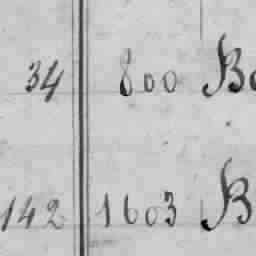 34 800 B
142 1603 B